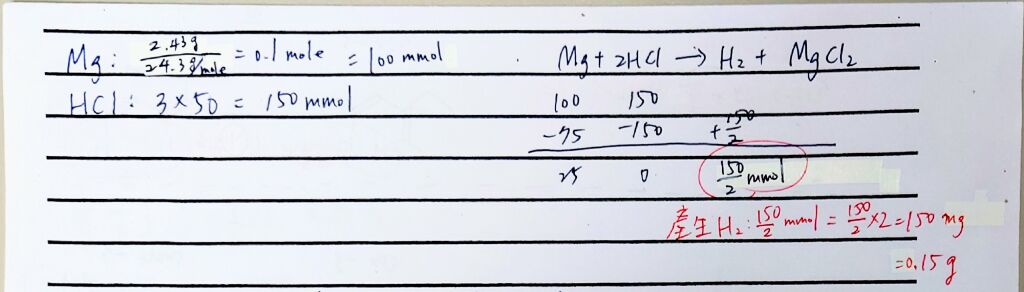 Mg: 2.43g / 24.3 g/mole = 0.1 mole = 100 mmol Mg + 2HCl → H₂ + MgCl₂
HCl: 3 × 50 = 150 mmol 100 150
-75 -150 + 150/2
25 0 150/2 mmol
產生 H₂: 150/2 mmol = 150/2 × 2 = 150 mg
= 0.15 g